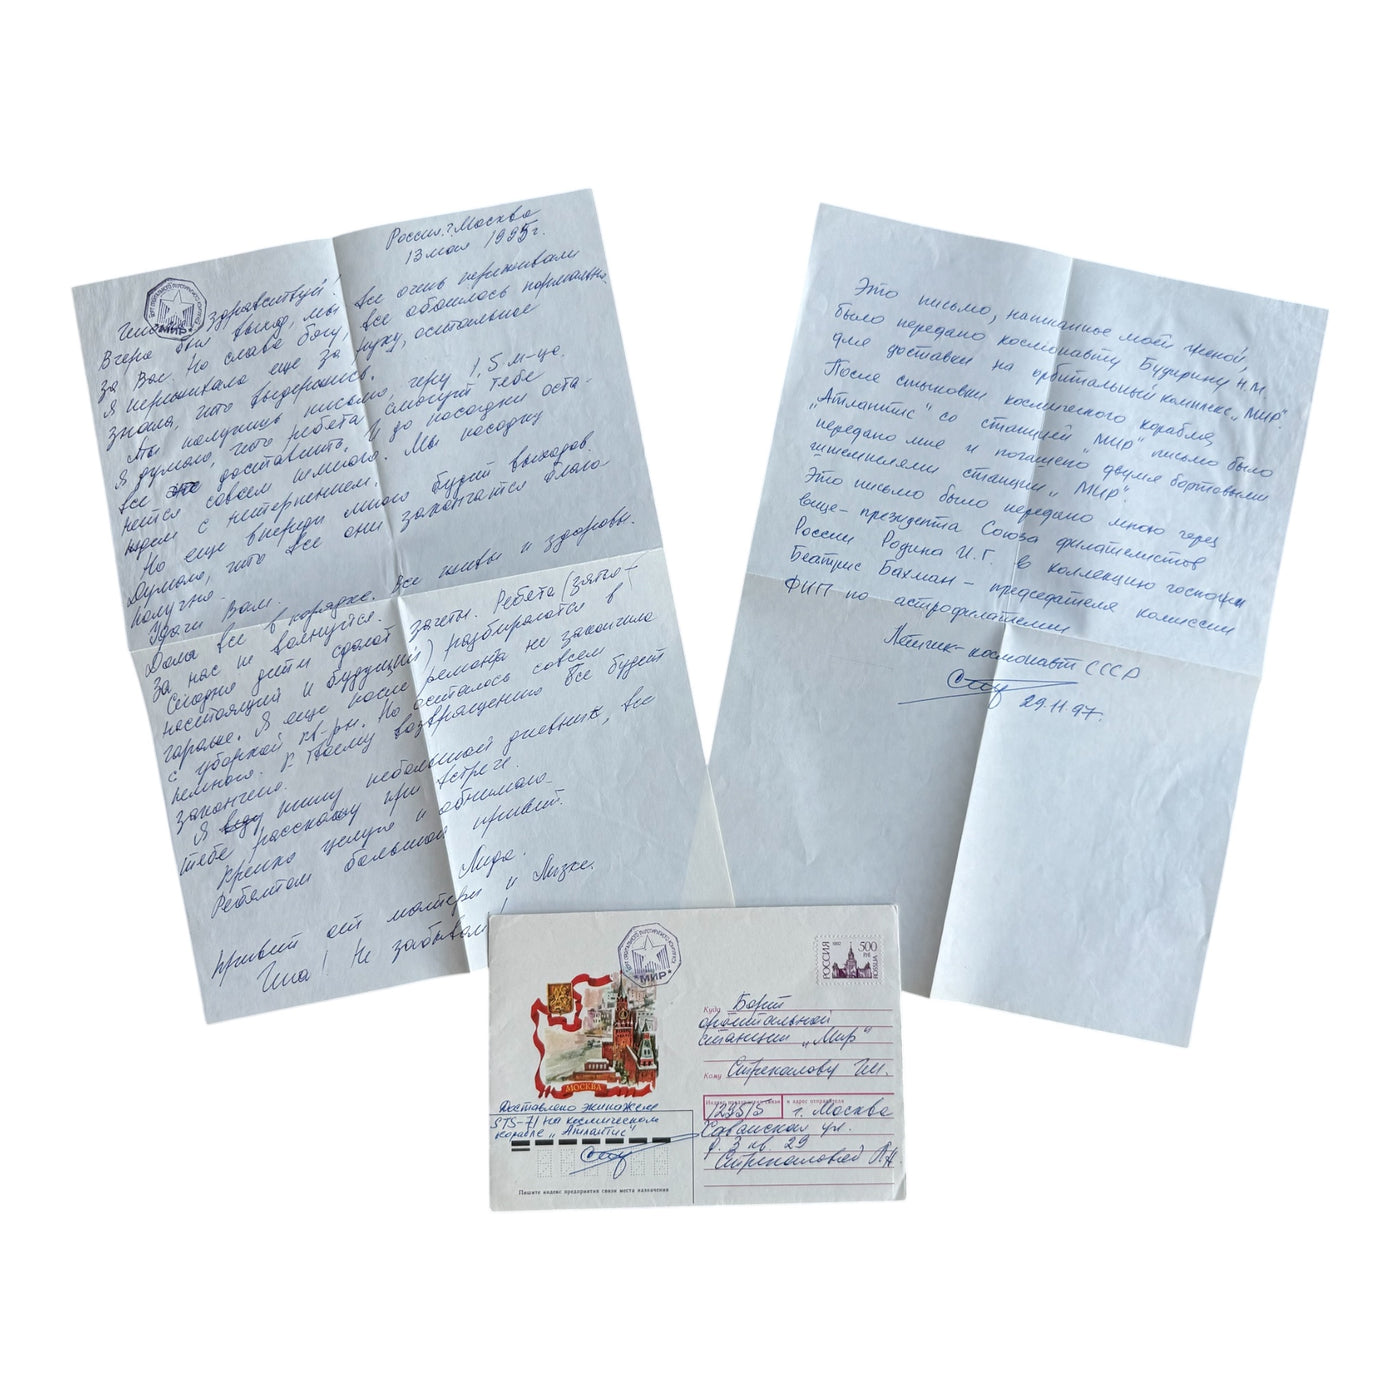 Россия. г. Москва
13 мая 1995г.
МИР
Гена здравствуй!
Вчера был выход, мы все очень переживали
за Вас. Но слава богу, все обошлось нормально.
Я переживала еще за руку, остальное
знала, что выдержишь.
Ты получишь письмо через 1,5 м-ца.
Я думаю, что ребята смогут тебе
все это доставить. И до посадки оста-
нется совсем немного. Мы посадку
ждем с нетерпением.
Но еще впереди много будет выходов.
Думаю, что все они закончатся благо-
получно.
Удачи Вам.
Дома все в порядке. Все живы и здоровы.
За нас не волнуйся.
Сегодня дети сдают зачеты. Ребята (зятья
настоящий и будущий) разбираются в
гараже. Я еще после ремонта не закончила
с уборкой кв-ры. Но осталось совсем
немного. К твоему возвращению все будет
закончено.
Я веду пишу небольшой дневник, все
тебе расскажу при встрече.
Крепко целую и обнимаю.
Ребятам большой привет.
Лида.
Привет от матери и Лизке.
Гена! Не забывай!
Это письмо, написанное моей женой,
было передано космонавту Бударину Н.М.
для доставки на орбитальный комплекс „МИР".
После стыковки космического корабля
„Атлантис" со станцией „МИР" письмо было
передано мне и погашено двумя бортовыми
штемпелями станции „МИР".
Это письмо было передано мною через
вице-президента Союза филателистов
России Родина И.Г. в коллекцию госпожи
Беатрис Бахман - председателя комиссии
ФИП по астрофилателии
Летчик-космонавт СССР
29.11.97.
МИР
РОССИЯ 1992 500 РУБ ROSSIJA
МОСКВА
Куда Борт
орбитальной
станции „Мир"
Кому Стрекалову Г.М.
Индекс предприятия связи и адрес отправителя
123515 г. Москва
Саванская ул.
д. 3 кв. 29
Стрекаловой Л.А.
Доставлено экипажем
STS-71 на космическом
корабле „Атлантис"
Пишите индекс предприятия связи места назначения